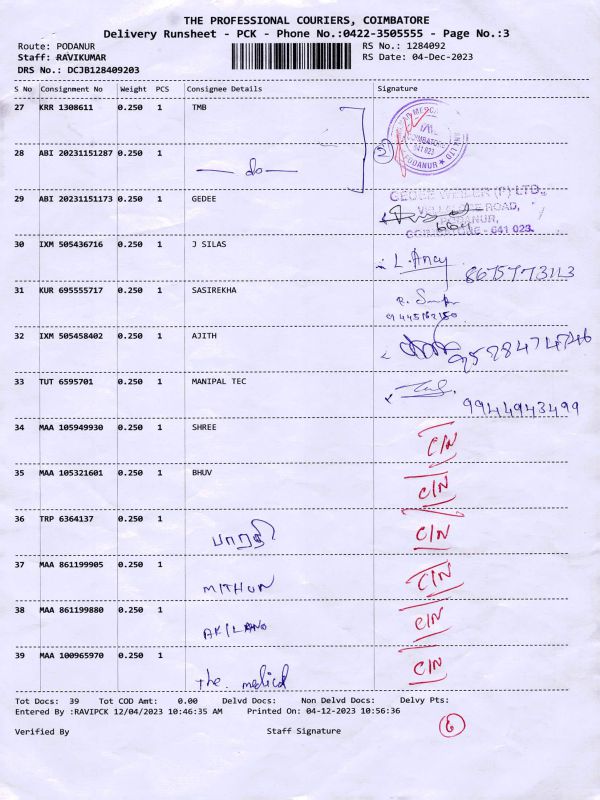 THE PROFESSIONAL COURIERS, COIMBATORE
Delivery Runsheet - PCK - Phone No.:0422-3505555 - Page No.:3
Route: PODANUR RS No.: 1284092
Staff: RAVIKUMAR RS Date: 04-Dec-2023
DRS No.: DCJB128409203
S No Consignment No Weight PCS Consignee Details Signature
27 KRR 1308611 0.250 1 TMB
28 ABI 20231151287 0.250 1
— do — 2
COIMBATORE
641 023
PODANUR
29 ABI 20231151173 0.250 1 GEDEE
ROAD,
PODANUR,
COIMBATORE - 641 023.
30 IXM 505436716 0.250 1 J SILAS
L. Ancy 8675773113
31 KUR 695555717 0.250 1 SASIREKHA
32 IXM 505458402 0.250 1 AJITH
9528474746
33 TUT 6595701 0.250 1 MANIPAL TEC
9944943499
34 MAA 105949930 0.250 1 SHREE C/N
35 MAA 105321601 0.250 1 BHUV C/N
36 TRP 6364137 0.250 1 பாரதி C/N
37 MAA 861199905 0.250 1 MITHUN C/N
38 MAA 861199880 0.250 1 C/N
39 MAA 100965970 0.250 1 The medical C/N
Tot Docs: 39 Tot COD Amt: 0.00 Delvd Docs: Non Delvd Docs: Delvy Pts:
Entered By :RAVIPCK 12/04/2023 10:46:35 AM Printed On: 04-12-2023 10:56:36
6
Verified By Staff Signature